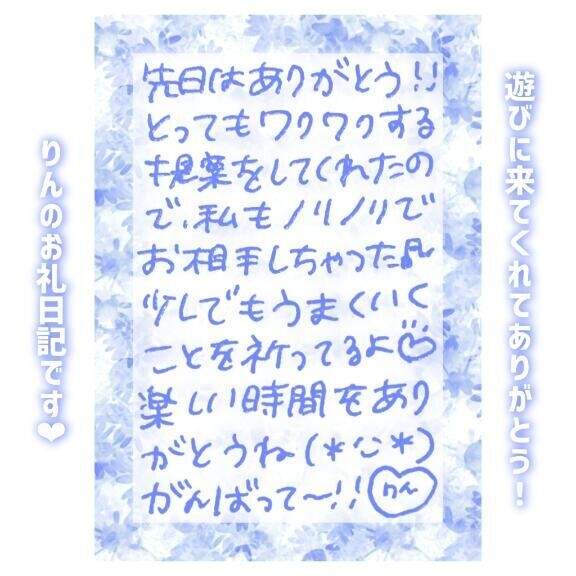 遊びに来てくれてありがとう！
先日はありがとう!!
とってもワクワクする
提案をしてくれたの
で、私もノリノリで
お相手しちゃった♬
少しでもうまくいく
ことを祈ってるよ♡
楽しい時間をあり
がとうね(*'ᵕ'*)
がんばって〜!!
りん
りんのお礼日記です❤